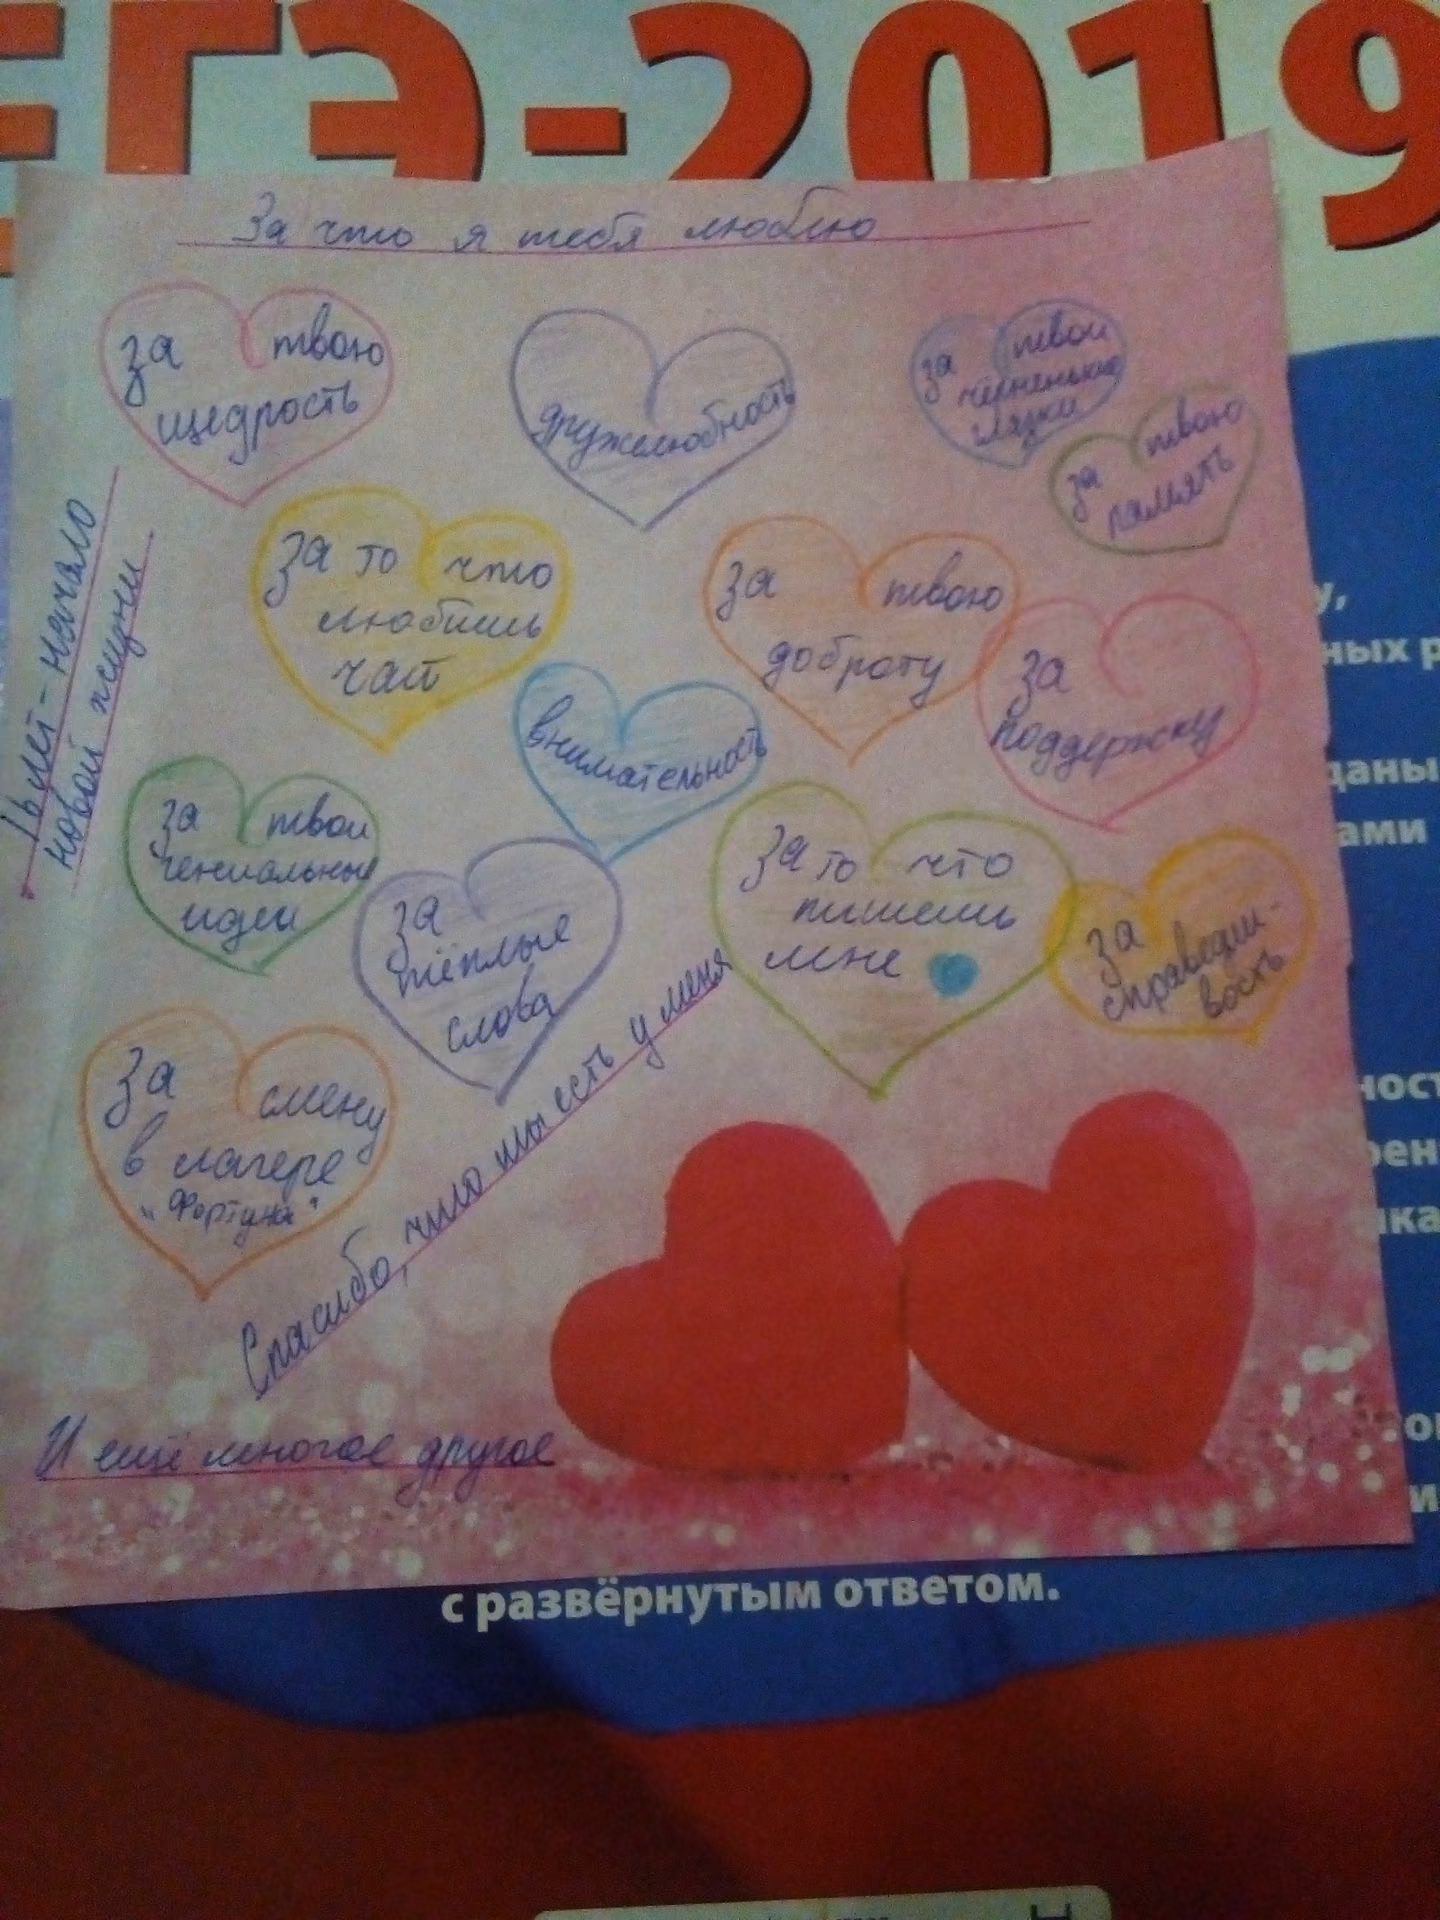 ЕГЭ-2019
За что я тебя люблю
за твою
щедрость
дружелюбность
за твои
черненькие
глазки
за твою
память
16 лет - начало
новой жизни
За то что
любишь
чат
за твою
доброту
за
поддержку
внимательность
за твои
гениальные
идеи
за
тёплые
слова
За то что
пишешь
мне
за
справедли-
вость
За смену
в лагере
"Фортуна"
Спасибо, что ты есть у меня
И ещё многое другое
с развёрнутым ответом.